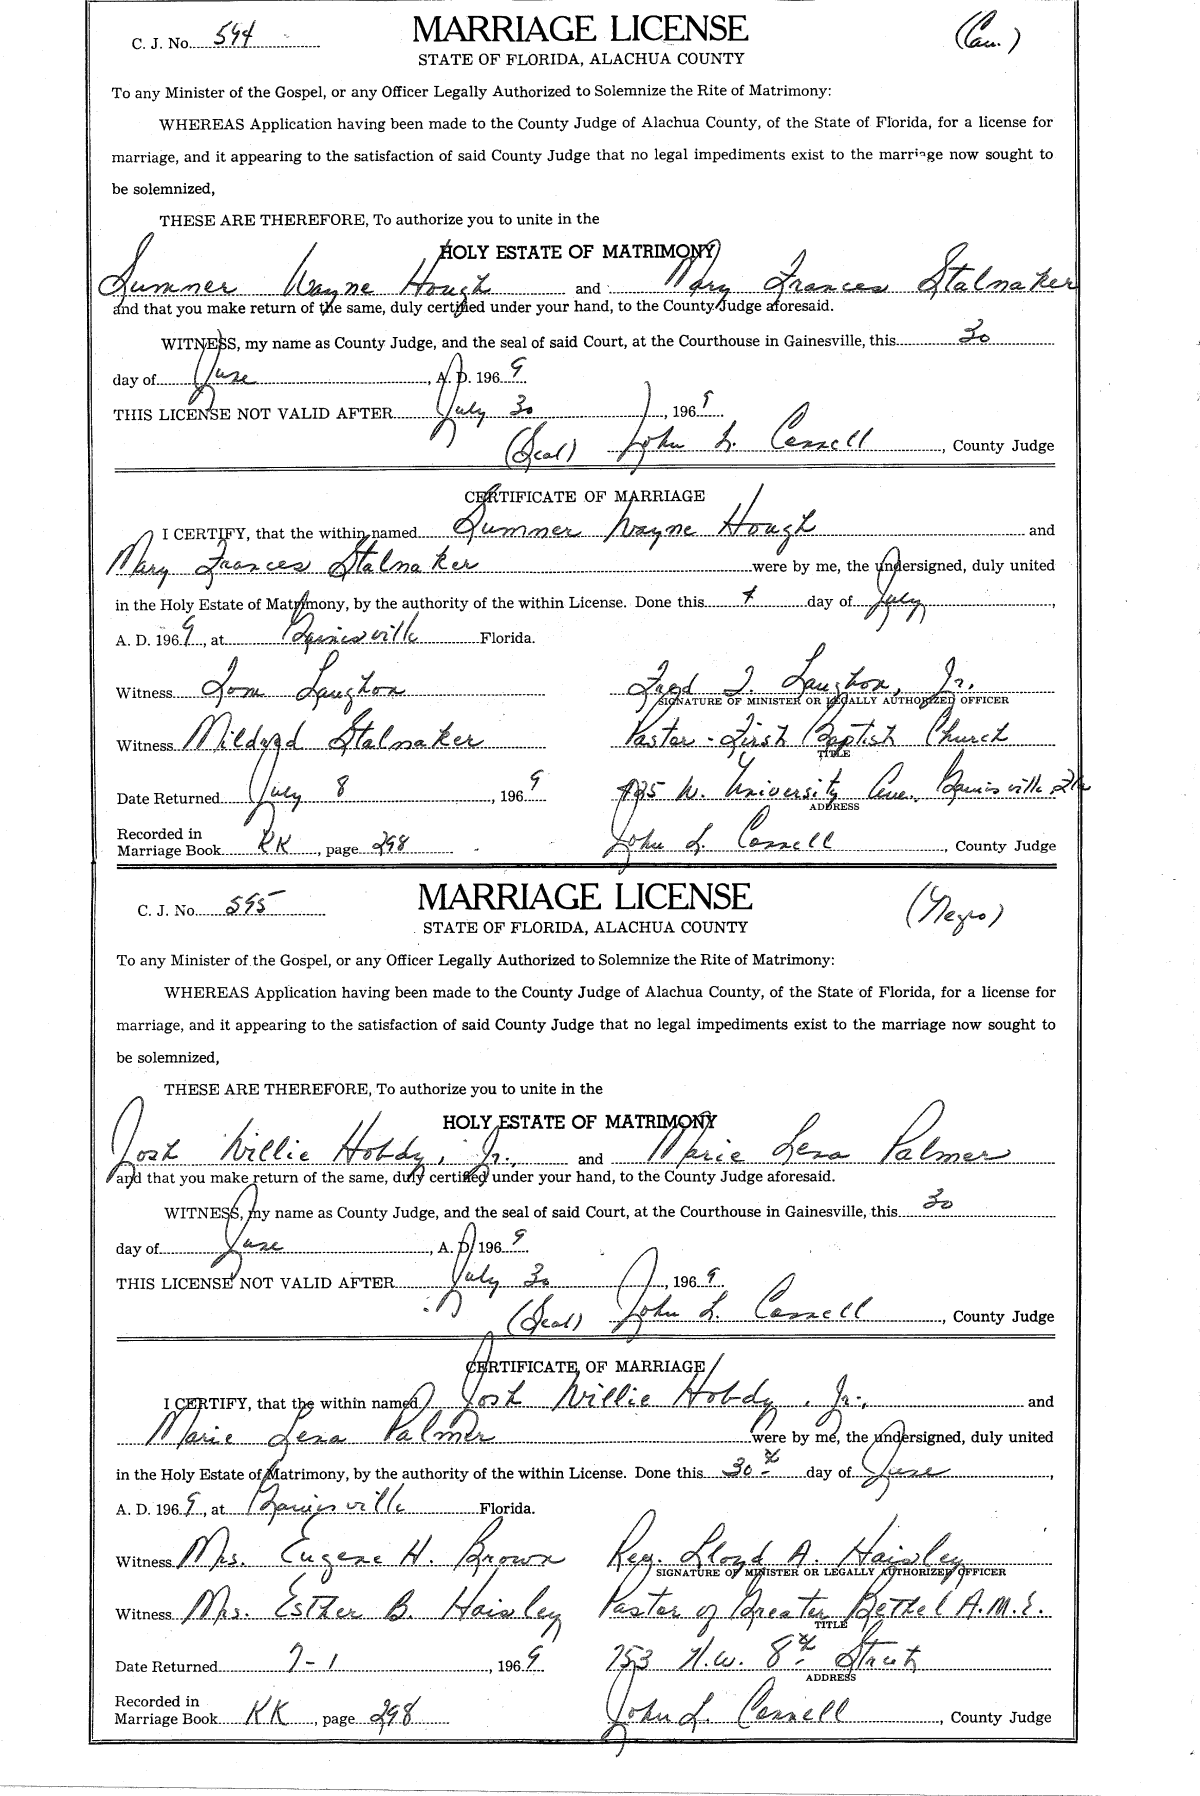 C. J. No. 594
MARRIAGE LICENSE
(Cau.)
STATE OF FLORIDA, ALACHUA COUNTY
To any Minister of the Gospel, or any Officer Legally Authorized to Solemnize the Rite of Matrimony:
WHEREAS Application having been made to the County Judge of Alachua County, of the State of Florida, for a license for
marriage, and it appearing to the satisfaction of said County Judge that no legal impediments exist to the marriage now sought to
be solemnized,
THESE ARE THEREFORE, To authorize you to unite in the
HOLY ESTATE OF MATRIMONY
Sumner Wayne Hough and Mary Frances Stalnaker
and that you make return of the same, duly certified under your hand, to the County Judge aforesaid.
WITNESS, my name as County Judge, and the seal of said Court, at the Courthouse in Gainesville, this 30
day of June, A. D. 1969
THIS LICENSE NOT VALID AFTER July 30, 1969
(Seal) John L. Connell, County Judge
CERTIFICATE OF MARRIAGE
I CERTIFY, that the within named Sumner Wayne Hough and
Mary Frances Stalnaker were by me, the undersigned, duly united
in the Holy Estate of Matrimony, by the authority of the within License. Done this 4 day of July,
A. D. 1969, at Gainesville Florida.
Witness Tom Laughon Fred T. Laughon, Jr.
SIGNATURE OF MINISTER OR LEGALLY AUTHORIZED OFFICER
Witness Mildred Stalnaker Pastor - First Baptist Church
TITLE
Date Returned July 8, 1969 425 W. University Ave. Gainesville, Fla
ADDRESS
Recorded in
Marriage Book KK, page 298 John L. Connell, County Judge
C. J. No. 595
MARRIAGE LICENSE
(Negro)
STATE OF FLORIDA, ALACHUA COUNTY
To any Minister of the Gospel, or any Officer Legally Authorized to Solemnize the Rite of Matrimony:
WHEREAS Application having been made to the County Judge of Alachua County, of the State of Florida, for a license for
marriage, and it appearing to the satisfaction of said County Judge that no legal impediments exist to the marriage now sought to
be solemnized,
THESE ARE THEREFORE, To authorize you to unite in the
HOLY ESTATE OF MATRIMONY
Josh Willie Hobdy, Jr., and Marie Lena Palmer
and that you make return of the same, duly certified under your hand, to the County Judge aforesaid.
WITNESS, my name as County Judge, and the seal of said Court, at the Courthouse in Gainesville, this 30
day of June, A. D. 1969
THIS LICENSE NOT VALID AFTER July 30, 1969
(Seal) John L. Connell, County Judge
CERTIFICATE OF MARRIAGE
I CERTIFY, that the within named Josh Willie Hobdy, Jr., and
Marie Lena Palmer were by me, the undersigned, duly united
in the Holy Estate of Matrimony, by the authority of the within License. Done this 30th day of June,
A. D. 1969, at Gainesville Florida.
Witness Mrs. Eugene H. Brown Rev. Lloyd A. Haisley
SIGNATURE OF MINISTER OR LEGALLY AUTHORIZED OFFICER
Witness Mrs. Esther B. Haisley Pastor of Greater Bethel A.M.E.
TITLE
Date Returned 7-1, 1969 753 N.W. 8th Street
ADDRESS
Recorded in
Marriage Book KK, page 298 John L. Connell, County Judge